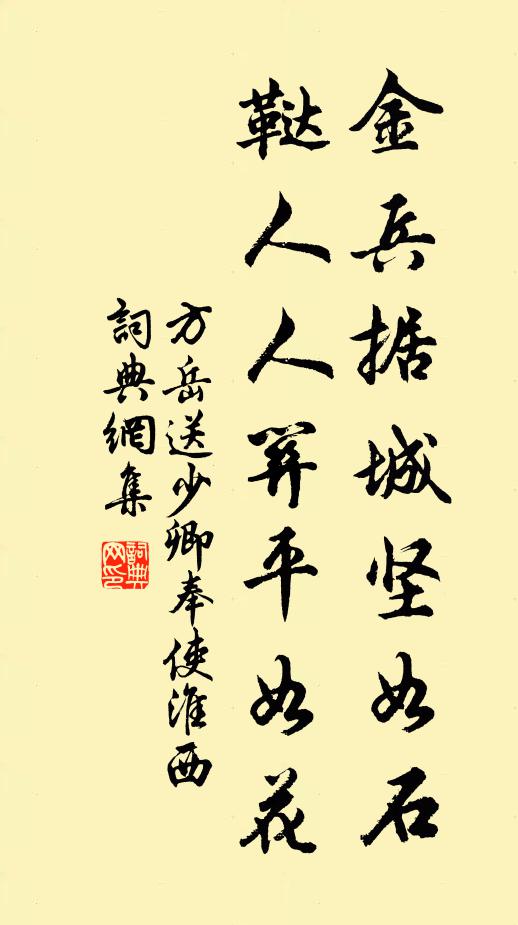 金兵据城坚如石
鞑人人平如花
方岳送少卿奉使淮西
詞典網集
詞典网印